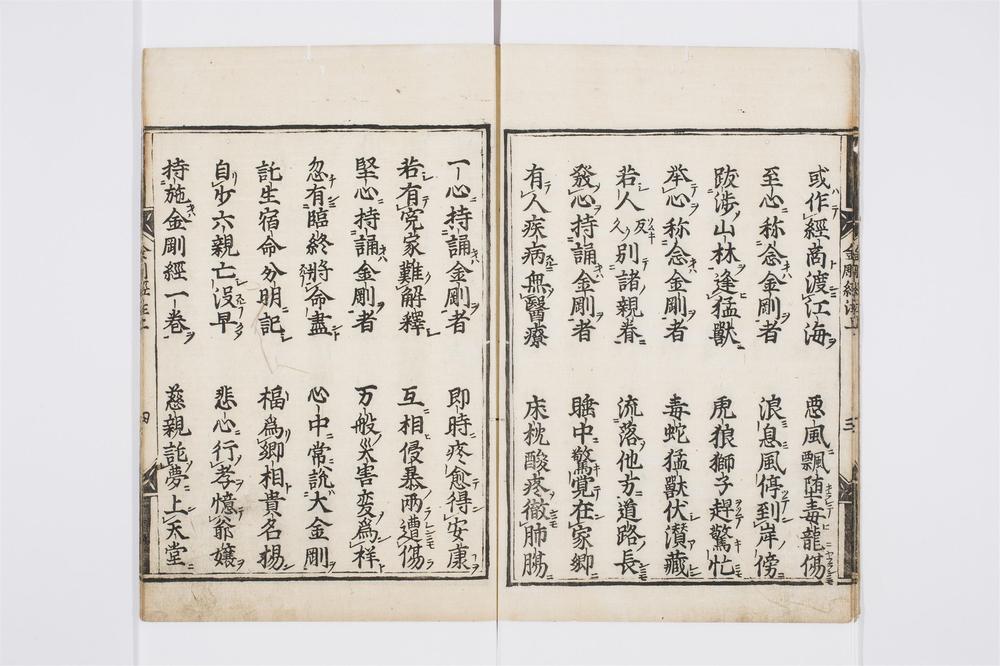 或作經商渡江海 惡風飄堕毒龍傷
至心称念金剛者 浪息風停到岸傍
跋渉山林逢猛獸 虎狼獅子趕驚忙
举心称念金剛者 毒蛇猛獸伏潜藏
若人反別諸親眷 流落他方道路長
發心持誦金剛者 睡中驚覚在家郷
有人疾病無醫療 床枕酸疼徹肺腸
一心持誦金剛者 即時疼愈得安康
若有寃家難解釋 互相侵暴兩遭傷
堅心持誦金剛者 万般災害変為样
忽有臨終將命盡 心中常說大金剛
託生宿命分明記 福為卿相貴名揚
自少六親亡没早 悲心行孝憶爺孃
持施金剛經一卷 慈親託夢上天堂
三
四